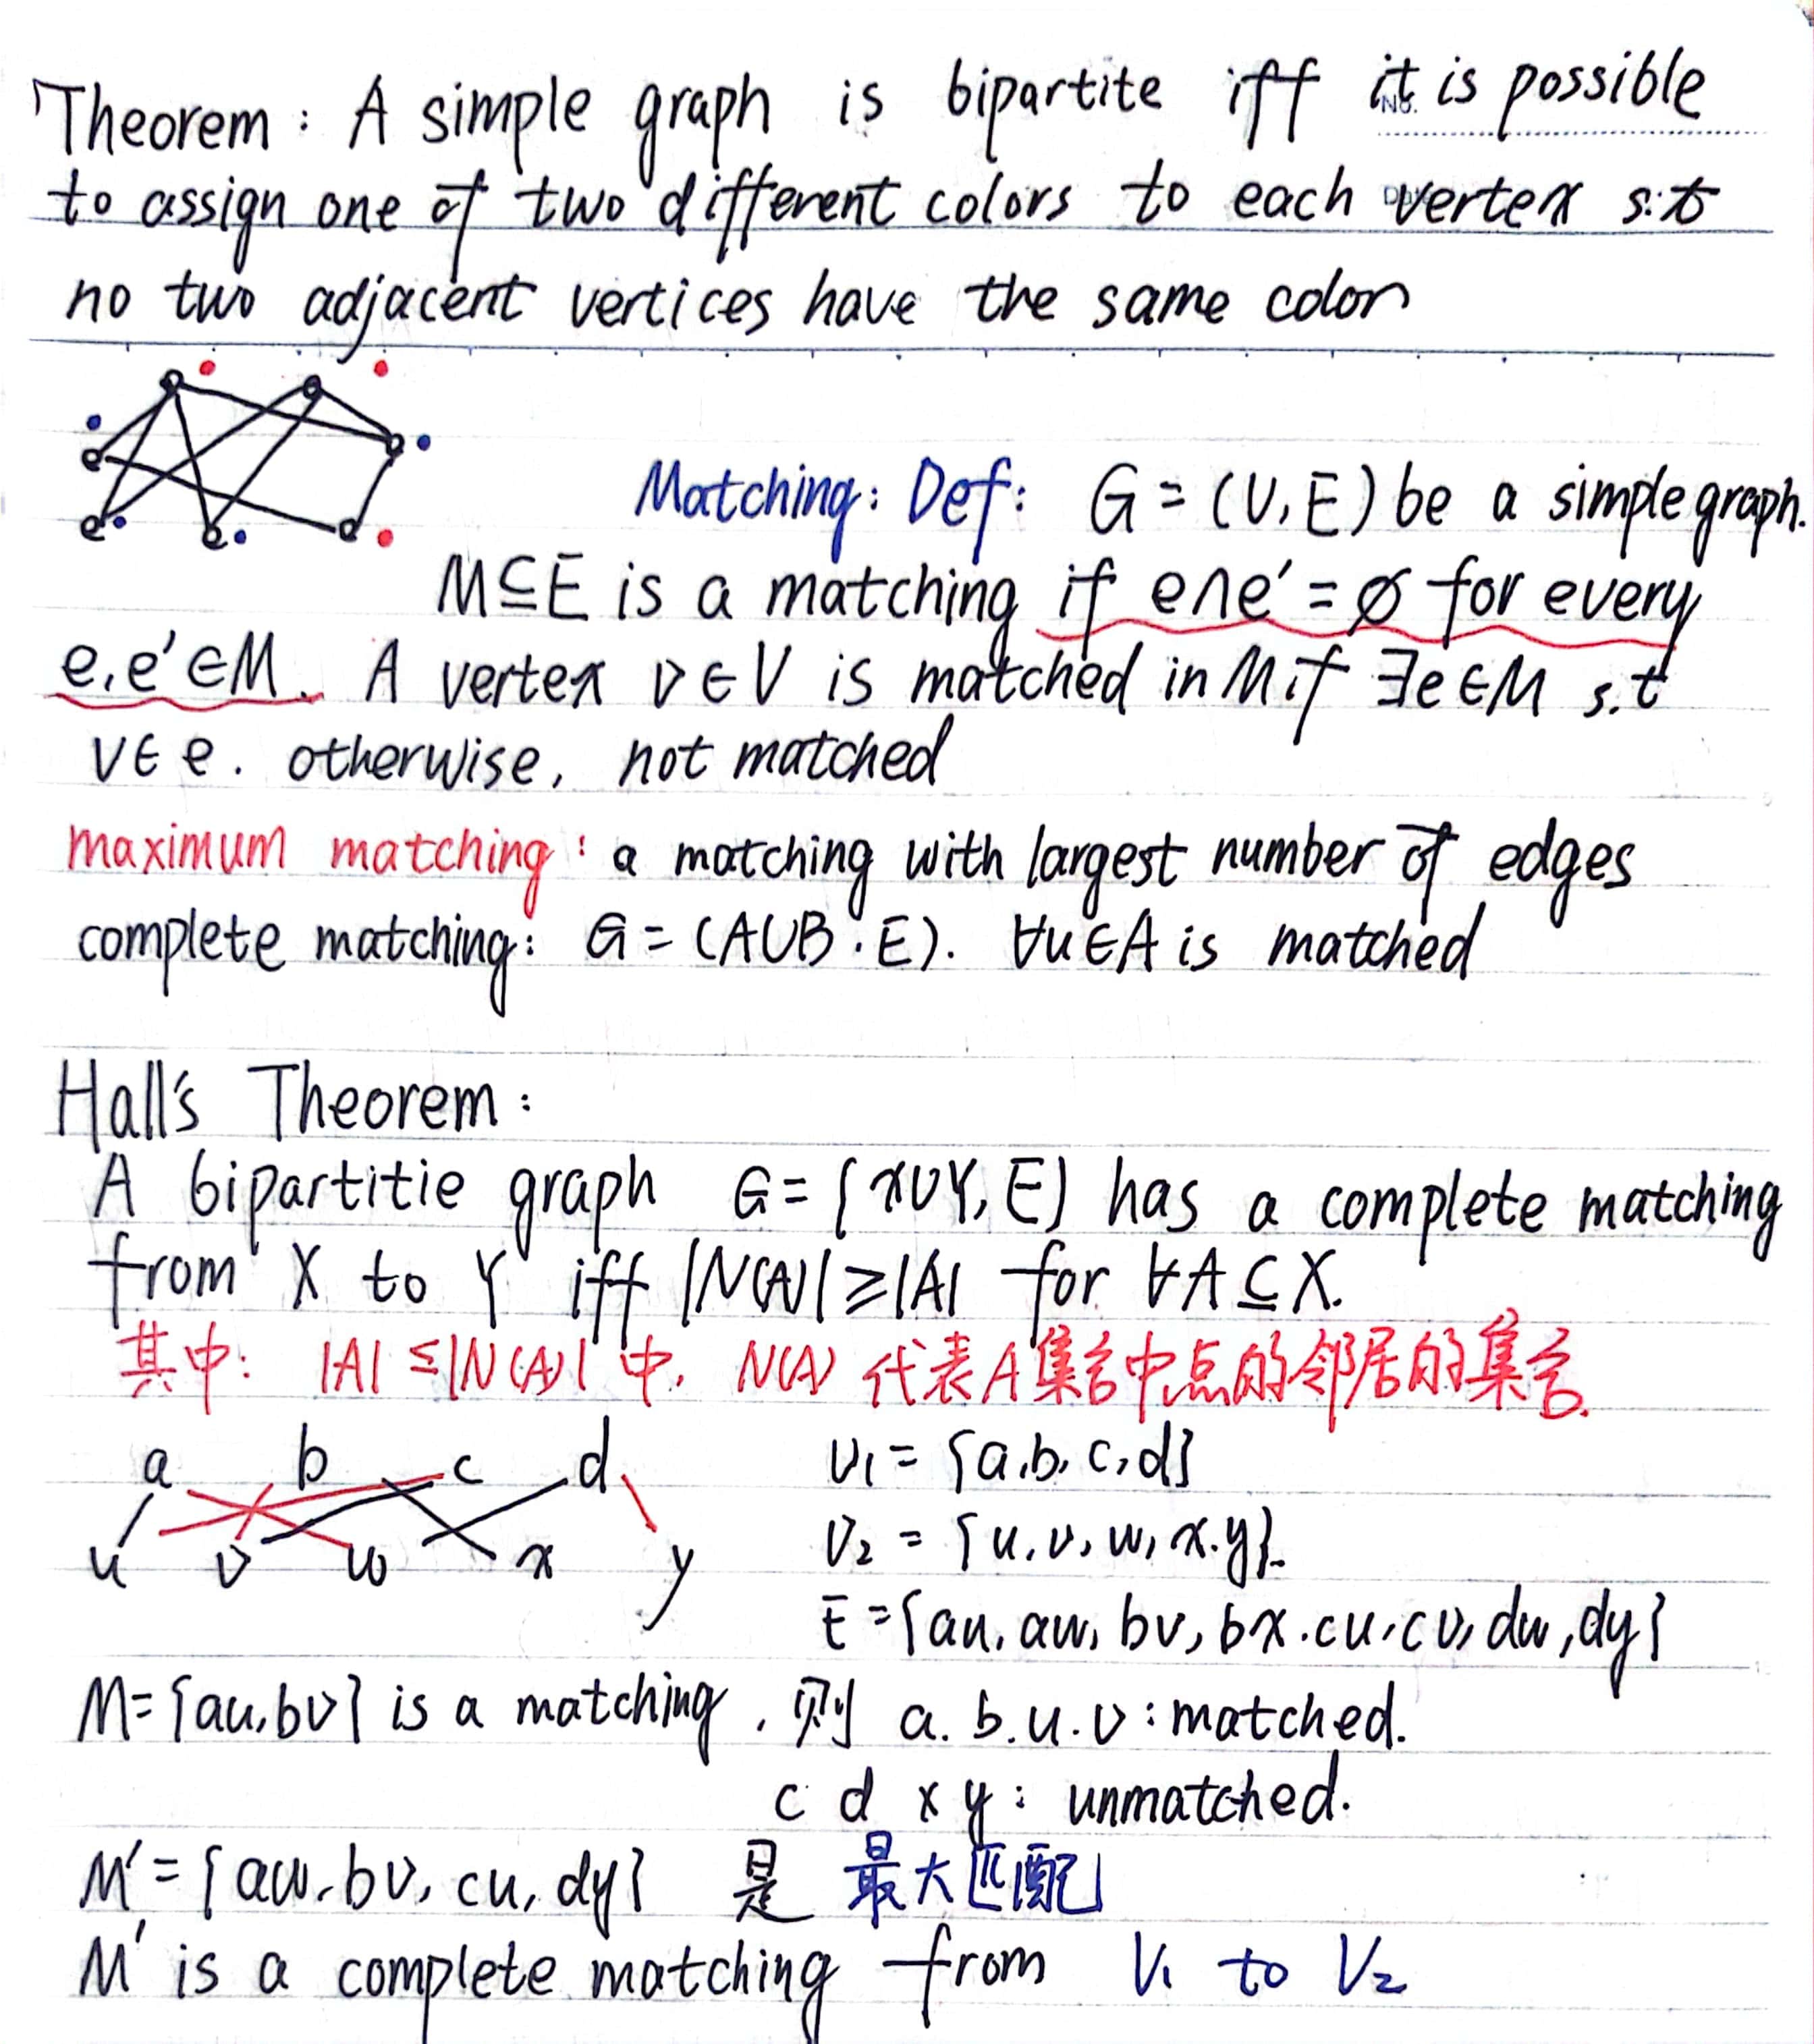 Theorem : A simple graph is bipartite iff it is possible
to assign one of two different colors to each vertex s.t
no two adjacent vertices have the same color
Matching: Def: G = (V, E) be a simple graph.
M⊆E is a matching if e∩e' = ∅ for every
e, e' ∈M. A vertex v ∈ V is matched in M if ∃e ∈M s.t
v∈ e. otherwise, not matched
maximum matching : a matching with largest number of edges
complete matching: G = (A∪B . E). ∀u∈A is matched
Hall's Theorem :
A bipartitie graph G = {X∪Y, E} has a complete matching
from X to Y iff |N(A)| ≥ |A| for ∀A ⊆ X.
其中: |A| ≤ |N(A)| 中, N(A) 代表A集合中点的邻居的集合.
a b c d
u v w x y
V1 = {a, b, c, d}
V2 = {u, v, w, x. y}.
E = {au, aw, bv, bx. cu, cv, dw, dy}
M = {au, bv} is a matching , 则 a. b. u. v : matched.
c d x y : unmatched.
M' = {aw, bv, cu, dy} 是 最大匹配
M' is a complete matching from V1 to V2